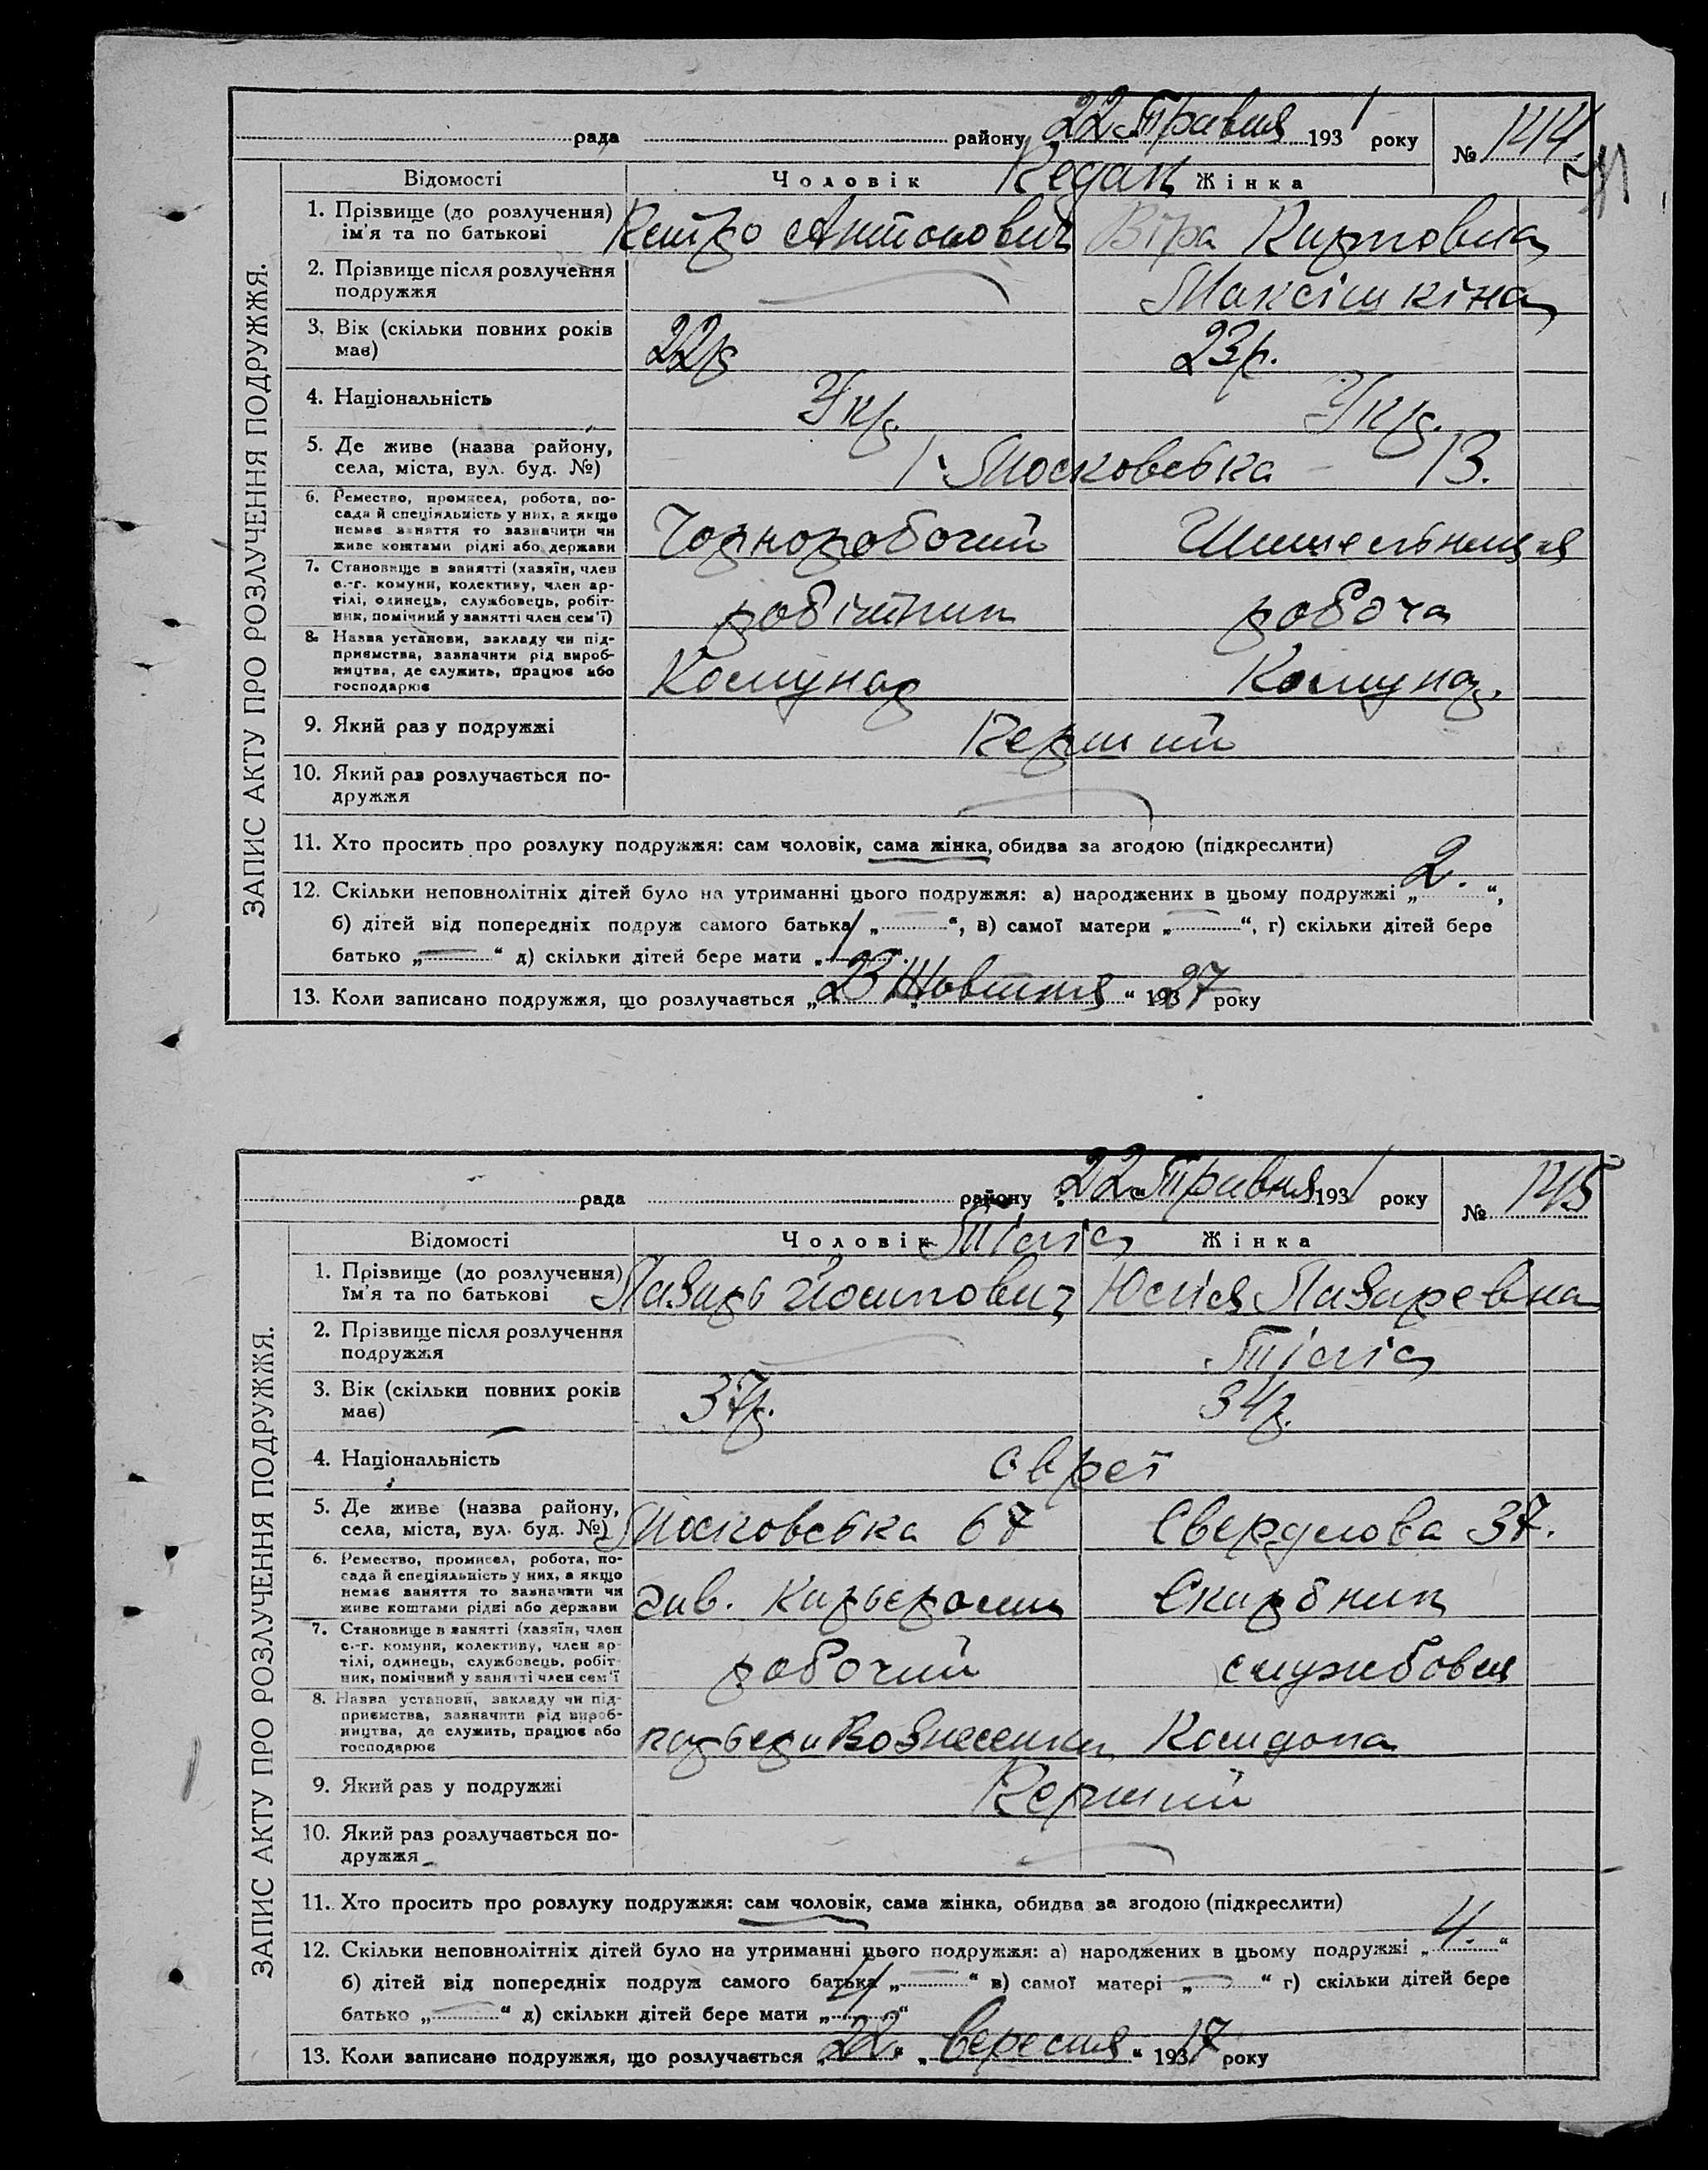 рада району „22„ Травня 1931 року № 144
Відомості Чоловік Жінка
1. Прізвище (до розлучення) ім'я та по батькові
Петро Антонович Віра Карповна
2. Прізвище після розлучення подружжя
Максішкіна
3. Вік (скільки повних років має)
22р 23р.
4. Національність
Укр. Укр.
5. Де живе (назва району, села, міста, вул. буд. №)
Московська 13.
6. Ремество, промисел, робота, посада й спеціяльність у них, а якщо немає заняття то зазначити чи живе коштами рідні або держави
Чорноробочий
7. Становище в занятті (хазяїн, член с.-г. комуни, колективу, член артілі, одинець, службовець, робітник, помічний у занятті член сем'ї)
робітник робоча
8. Назва установи, закладу чи підприємства, зазначити рід виробництва, де служить, працює або господарює
Комунар Комунар.
9. Який раз у подружжі
Перший
10. Який раз розлучається подружжя
11. Хто просить про розлуку подружжя: сам чоловік, сама жінка, обидва за згодою (підкреслити)
12. Скільки неповнолітніх дітей було на утриманні цього подружжя: а) народжених в цьому подружжі „2.“,
б) дітей від попередніх подруж самого батька „—“, в) самої матери „—“, г) скільки дітей бере
батько „—“ д) скільки дітей бере мати „
13. Коли записано подружжя, що розлучається „23 „Жовтня“ 1927 року
ЗАПИС АКТУ ПРО РОЗЛУЧЕННЯ ПОДРУЖЖЯ.
рада району „22„ Травня 1931 року № 145
Відомості Чоловік Жінка
1. Прізвище (до розлучення) їм'я та по батькові
Лазарь Йосипович Юлія Лазаревна
2. Прізвище після розлучення подружжя
3. Вік (скільки повних років має)
37р. 34р.
4. Національність
євреї
5. Де живе (назва району, села, міста, вул. буд. №)
Московська 67 Свердлова 37.
6. Ремество, промисел, робота, посада й спеціяльність у них, а якщо немає заняття то зазначити чи живе коштами рідні або держави
зав. Карьером Скарбник
7. Становище в занятті (хазяїн, член с.-г. комуни, колективу, член артілі, одинець, службовець, робітник, помічний у занятті член сем'ї
робочий службовець
8. Назва установи, закладу чи підприємства, зазначити рід виробництва, де служить, працює або господарює
карьери Вознесенка
9. Який раз у подружжі
Перший
10. Який раз розлучається подружжя
11. Хто просить про розлуку подружжя: сам чоловік, сама жінка, обидва за згодою (підкреслити)
12. Скільки неповнолітніх дітей було на утриманні цього подружжя: а) народжених в цьому подружжі „4.“
б) дітей від попередніх подруж самого батька „—“ в) самої матері „—“ г) скільки дітей бере
батько „—“ д) скільки дітей бере мати „4“
13. Коли записано подружжя, що розлучається „22“ „вересня“ 1917 року
ЗАПИС АКТУ ПРО РОЗЛУЧЕННЯ ПОДРУЖЖЯ.